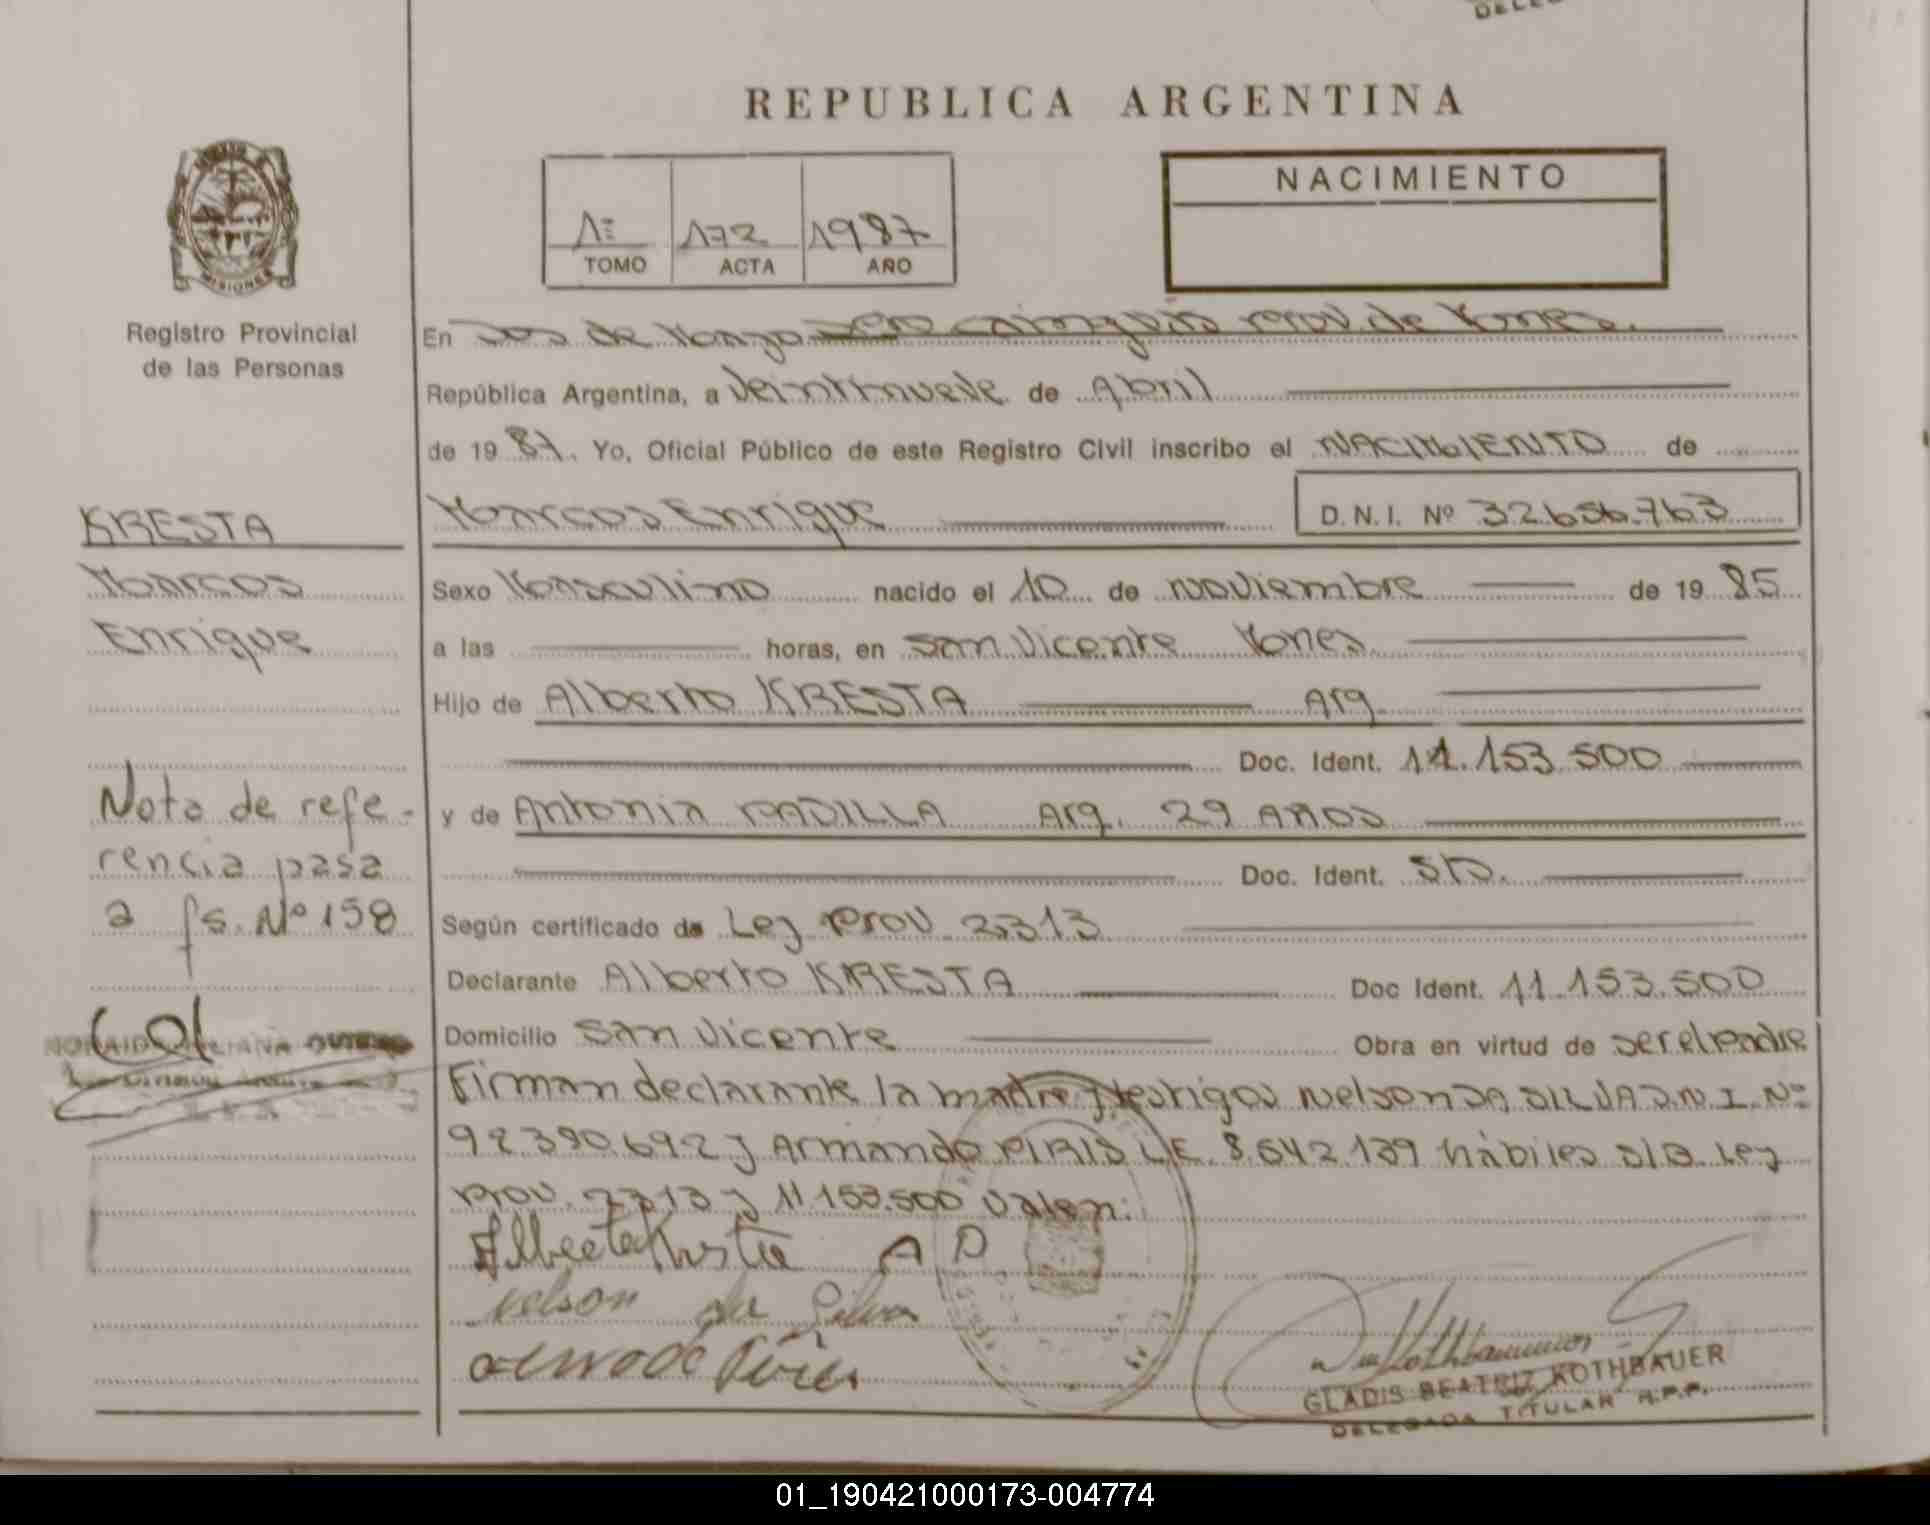 REPUBLICA ARGENTINA
NACIMIENTO
1º 172 1987
TOMO ACTA AÑO
MISIONES
Registro Provincial
de las Personas
En Dos de Mayo Dpto Cainguás Prov. de Mnes.
República Argentina, a Veintinueve de Abril
de 1987. Yo, Oficial Público de este Registro Civil inscribo el NACIMIENTO de
Marcos Enrique D.N.I. Nº 32.656.763
KRESTA
Marcos
Enrique
Sexo Masculino nacido el 10 de noviembre de 1985
a las horas, en San Vicente Mnes.
Hijo de Alberto KRESTA Arg
Doc. Ident. 11.153.500
y de Antonia PADILLA Arg. 29 Años
Doc. Ident. S/D.
Según certificado de Ley Prov 2313
Declarante Alberto KRESTA Doc Ident. 11.153.500
Domicilio San Vicente Obra en virtud de ser el padre
Firman declarante la madre y testigos Nelson DA SILVA D.N.I. Nº
92.390.692 y Armando PIRIS L.E. 8.542.139 hábiles S/B. Ley
Prov. 2313 y 11.153.500 Valen:
Nota de refe-
rencia pasa
a fs. Nº 158
Alberto Kresta A P
Nelson da Silva
GLADIS BEATRIZ KOTHBAUER
DELEGADA TITULAR R.P.P.
01_190421000173-004774